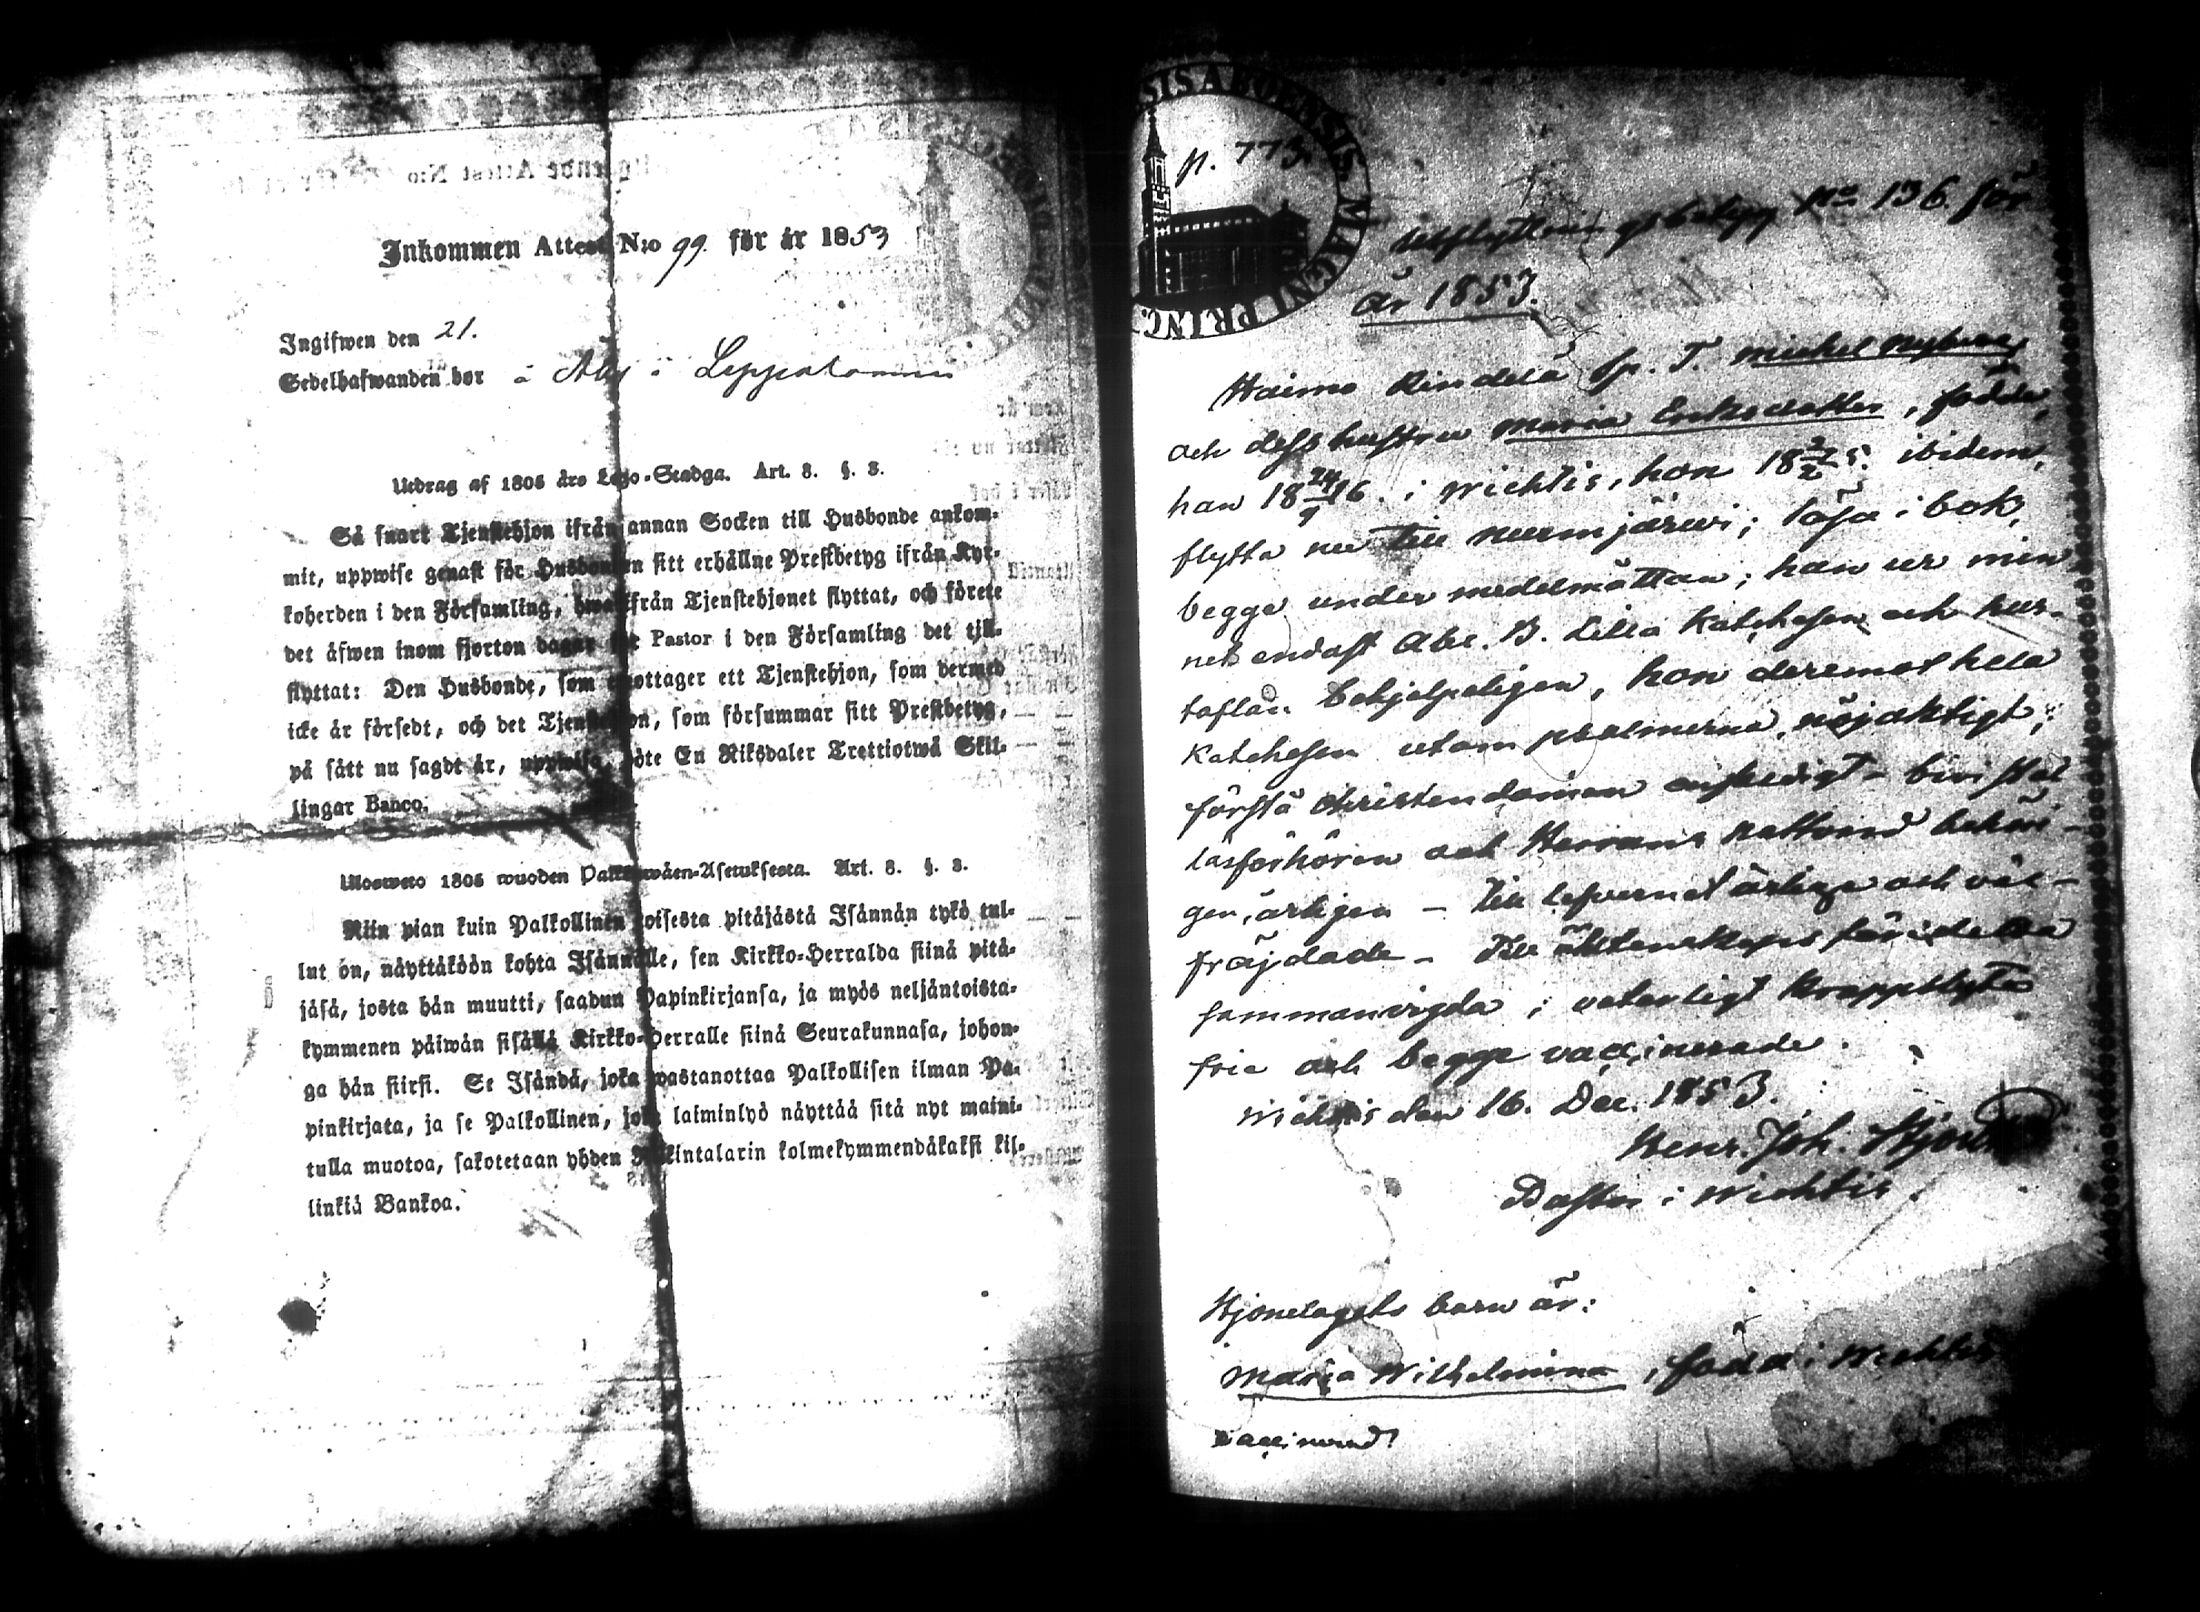 Inkommen Attest N:o 99. för år 1853
Ingifwen den 21.
Sedelhafwanden bor i Åby i Leppälammi
Utdrag af 1805 års Lego-Stadga. Art. 8. §. 3.
Så snart Tjenstehjon ifrån annan Socken till Husbonde ankom-
mit, uppwise genast för Husbonden sitt erhållne Prestbetyg ifrån Kyr-
koherden i den Församling, hwarifrån Tjenstehjonet flyttat, och förete
det äfwen inom fjorton dagar för Pastor i den Församling det till-
flyttat: Den Husbonde, som emottager ett Tjenstehjon, som dermed
icke är försedt, och det Tjenstehjon, som försummar sitt Prestbetyg,
på sätt nu sagdt är, uppwisa, böte En Riksdaler Trettiotwå Skil-
lingar Banco.
Ulosweto 1805 wuoden Palkkawäen-Asetuksesta. Art. 8. §. 3.
Niin pian kuin Palkollinen toisesta pitäjästä Isännän tykö tul-
lut on, näyttäköön kohta Isännälle, sen Kirkko-Herralda siinä pitä-
jäsä, josta hän muutti, saadun Papinkirjansa, ja myös neljäntoista-
kymmenen päiwän sisällä Kirkko-Herralle siinä Seurakunnasa, johon-
ga hän siirsi. Se Isändä, joka wastanottaa Palkollisen ilman Pa-
pinkirjata, ja se Palkollinen, joka laiminlyö näyttää sitä nyt maini-
tulla muotoa, sakotetaan yhden Riikintalarin kolmekymmendäkaksi kil-
linkiä Bankoa.
SIS ABOENSIS. MAGNI PRINC.
p. 773.
utflyttningsbetyg No 136. för
år 1853.
Haimo Rindelä sp. T. Michel Nyberg
och dess hustru Maria Eriksdotter, födde,
han 18 24/9 16. i Wichtis, hon 18 ibidem,
flytta nu till Nurmijärvi; läsa i bok,
begge under medelmåttan; han ur min-
net endast Abc. B. Lilla Katchesen och hus-
taflan behjelpeligen, hon deremot hela
Katchesen utom psalmerna, nöjaktigt;
förstå christendomen enfaldigt – bivistat
läsförhören och Herrans Nattvard behöri-
gen, årligen – till lefvernet ärliga och väl-
fräjdade – Till äktenskaps
sammanvigda; naturligt koppslagte
frie och begge vaccinerade.
Wichtis den 16. Dec. 1853.
Henr. Joh.
Pastor i Wichtis.
Hjonelagets barn är:
Maria Wilhelmina, född i Wichtis
vaccinerad!